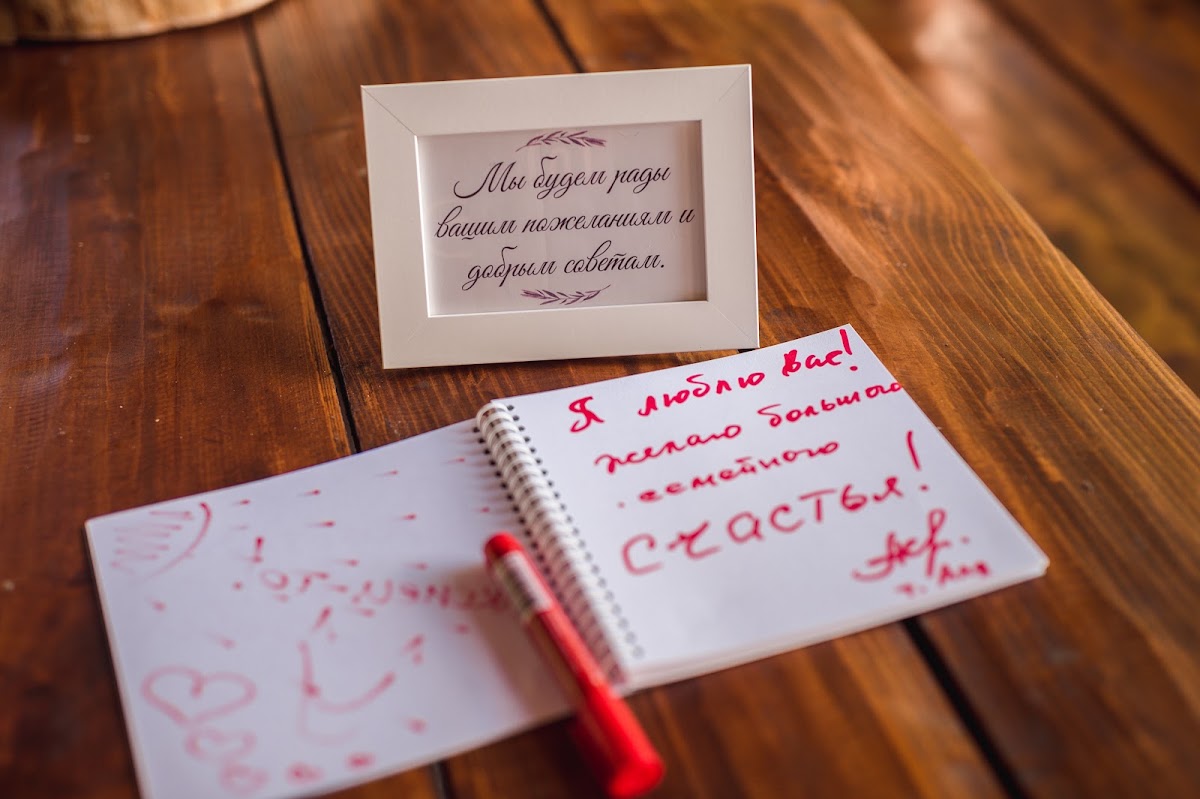 Мы будем рады
вашим пожеланиям и
добрым советам.
Я люблю Вас!
желаю большого
семейного
счастья!